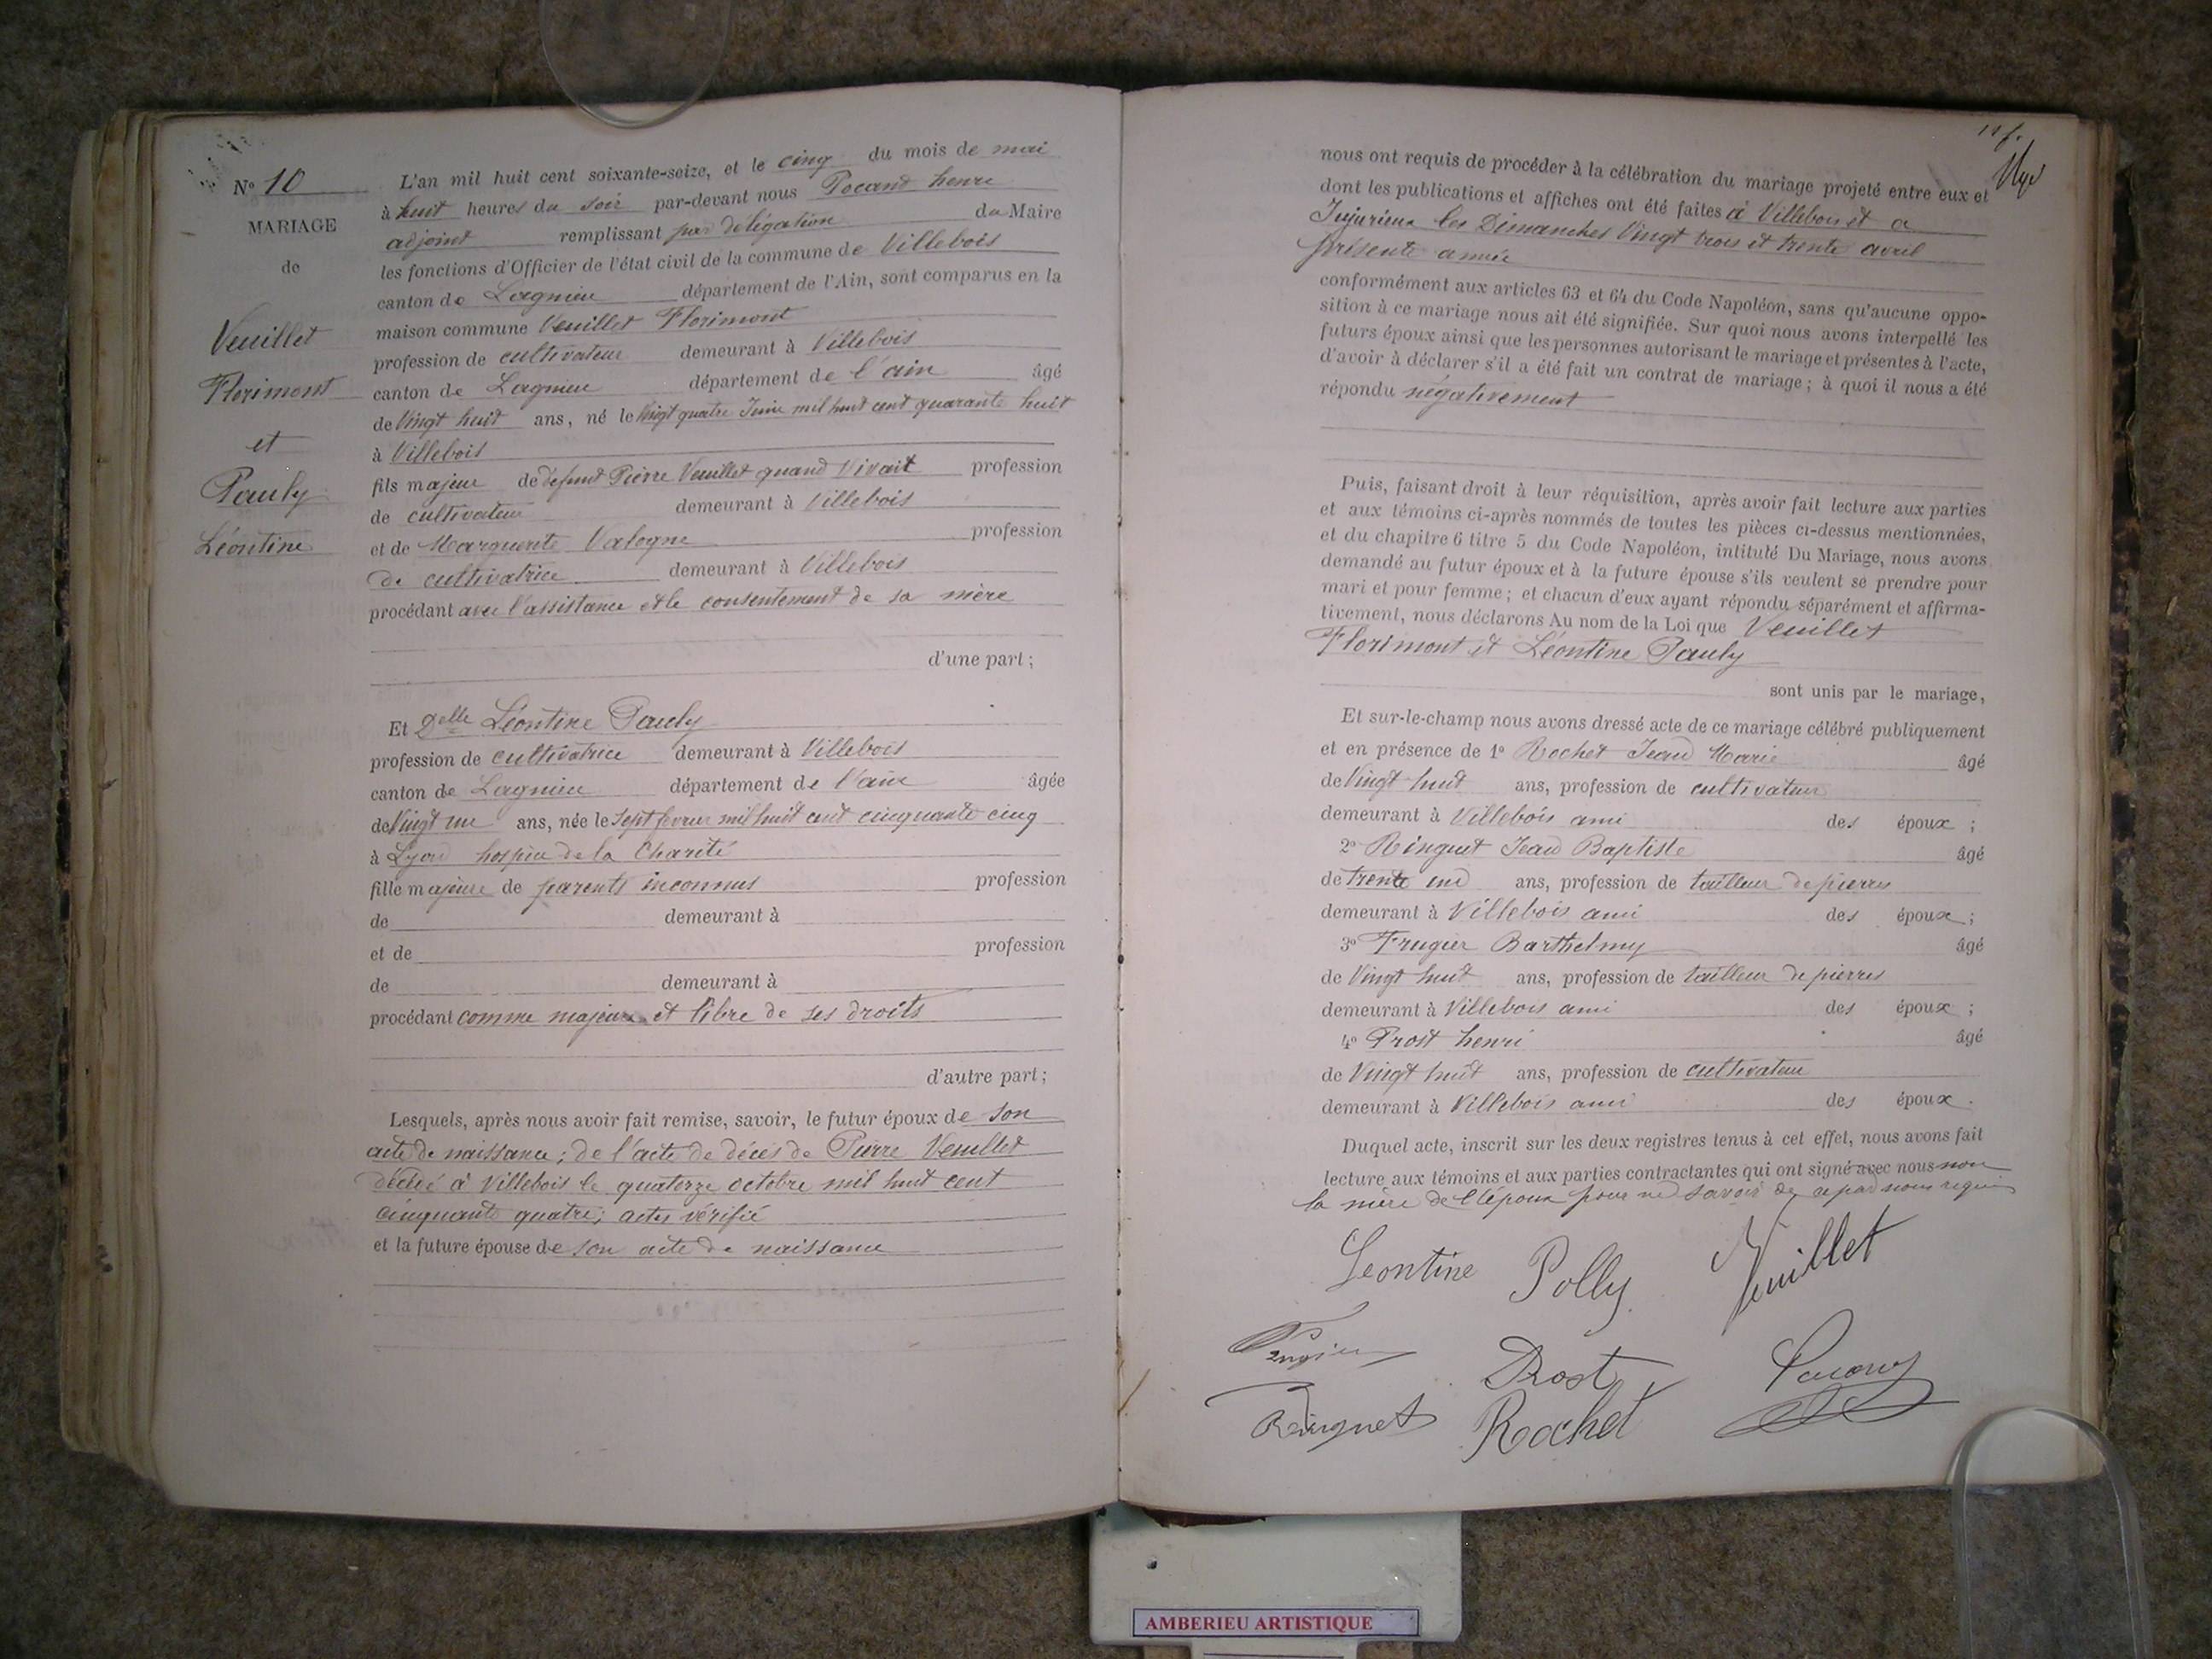 N° 10
MARIAGE
de
Veuillet
Florimont
et
Pauly
Léontine
L'an mil huit cent soixante-seize, et le cinq du mois de mai
à huit heures du soir par-devant nous Pocand henri
adjoint remplissant par délégation du Maire
les fonctions d'Officier de l'état civil de la commune de Villebois
canton de Lagnieu département de l'Ain, sont comparus en la
maison commune Veuillet Florimont
profession de cultivateur demeurant à Villebois
canton de Lagnieu département de l'ain âgé
de Vingt huit ans, né le Vingt quatre Juin mil huit cent quarante huit
à Villebois
fils majeur de défunt Pierre Veuillet quand Vivait profession
de cultivateur demeurant à Villebois
et de Marguerite Valogne profession
de cultivatrice demeurant à Villebois
procédant avec l'assistance et le consentement de sa mère
d'une part;
Et Delle Léontine Pauly
profession de cultivatrice demeurant à Villebois
canton de Lagnieu département de l'ain âgée
de Vingt un ans, née le sept fevrier mil huit cent cinquante cinq
à Lyon hospice de la Charité
fille majeure de parents inconnus profession
de demeurant à
et de profession
de demeurant à
procédant comme majeure et libre de ses droits
d'autre part;
Lesquels, après nous avoir fait remise, savoir, le futur époux de son
acte de naissance; de l'acte de décès de Pierre Veuillet
décédé à Villebois le quatorze octobre mil huit cent
cinquante quatre; actes vérifié
et la future épouse de son acte de naissance
nous ont requis de procéder à la célébration du mariage projeté entre eux et
dont les publications et affiches ont été faites à Villebois et a
Jujurieux les Dimanches Vingt trois et trente avril
présente année
conformément aux articles 63 et 64 du Code Napoléon, sans qu'aucune oppo-
sition à ce mariage nous ait été signifiée. Sur quoi nous avons interpellé les
futurs époux ainsi que les personnes autorisant le mariage et présentes à l'acte,
d'avoir à déclarer s'il a été fait un contrat de mariage; à quoi il nous a été
répondu négativement
Puis, faisant droit à leur réquisition, après avoir fait lecture aux parties
et aux témoins ci-après nommés de toutes les pièces ci-dessus mentionnées,
et du chapitre 6 titre 5 du Code Napoléon, intitulé Du Mariage, nous avons
demandé au futur époux et à la future épouse s'ils veulent se prendre pour
mari et pour femme; et chacun d'eux ayant répondu séparément et affirma-
tivement, nous déclarons Au nom de la Loi que Veuillet
Florimont et Léontine Pauly
sont unis par le mariage,
Et sur-le-champ nous avons dressé acte de ce mariage célébré publiquement
et en présence de 1° Rochet Jean Marie âgé
de Vingt huit ans, profession de cultivateur
demeurant à Villebois ami des époux;
2° Ringuet Jean Baptiste âgé
de trente un ans, profession de tailleur de pierres
demeurant à Villebois ami des époux;
3° Frugier Barthelmy âgé
de Vingt huit ans, profession de tailleur de pierres
demeurant à Villebois ami des époux;
4° Prost henri âgé
de Vingt huit ans, profession de cultivateur
demeurant à Villebois ami des époux.
Duquel acte, inscrit sur les deux registres tenus à cet effet, nous avons fait
lecture aux témoins et aux parties contractantes qui ont signé avec nous non
la mère de l'époux pour ne savoir de ce par nous requis
Leontine Polly Veuillet
Prost
Ringuet Rochet
AMBERIEU ARTISTIQUE